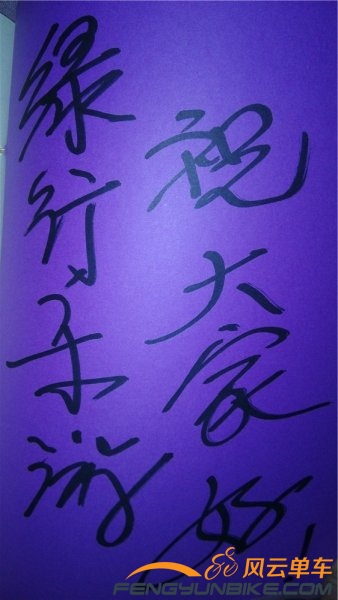 祝大家好
绿行乐游
风云单车
FENGYUNBIKE.COM